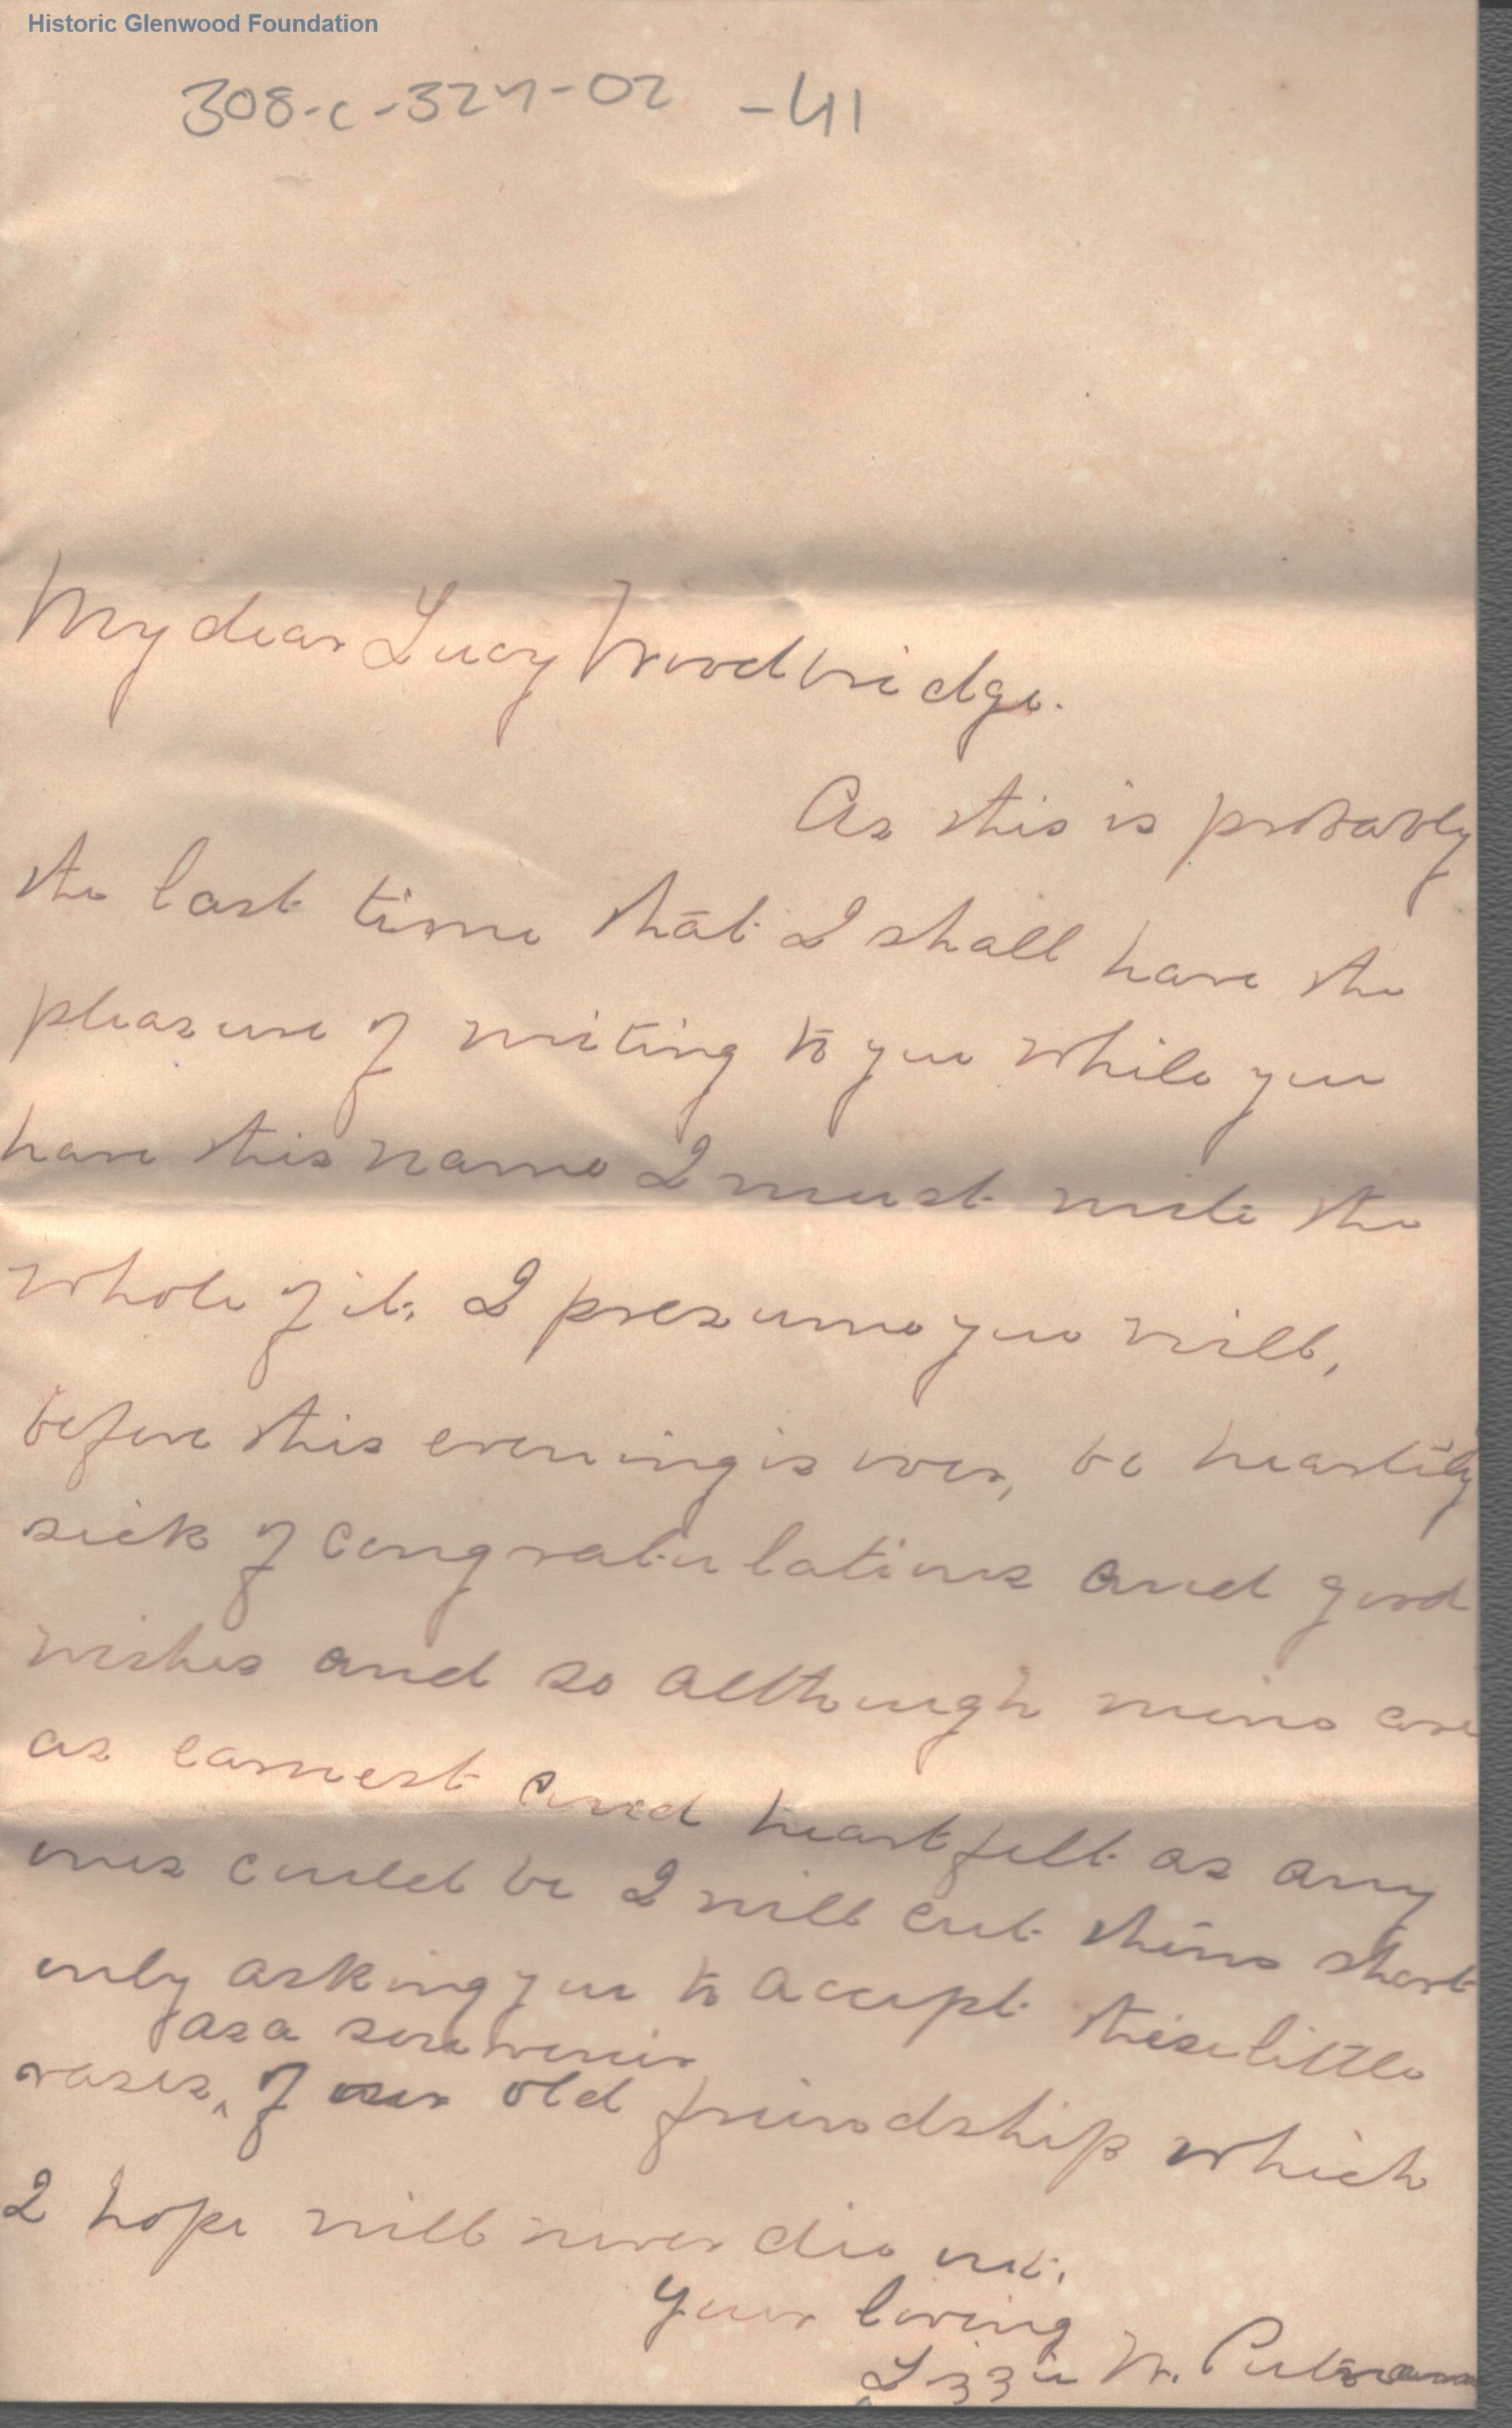 Historic Glenwood Foundation
308-c-327-02 -41
My dear Lucy Woodbridge.
As this is probably
the last time that I shall have the
pleasure of writing to you while you
have this name I must write the
whole of it. I presume you will,
before this evening is over, be heartily
sick of congratulations and good
wishes and so although mine are
as earnest and heartfelt as any
ones could be I will cut them short
only asking you to accept these little
as a souvenir
vases, ^ of our old friendship which
I hope will never die out.
Your loving
Lizzie W. Putnam